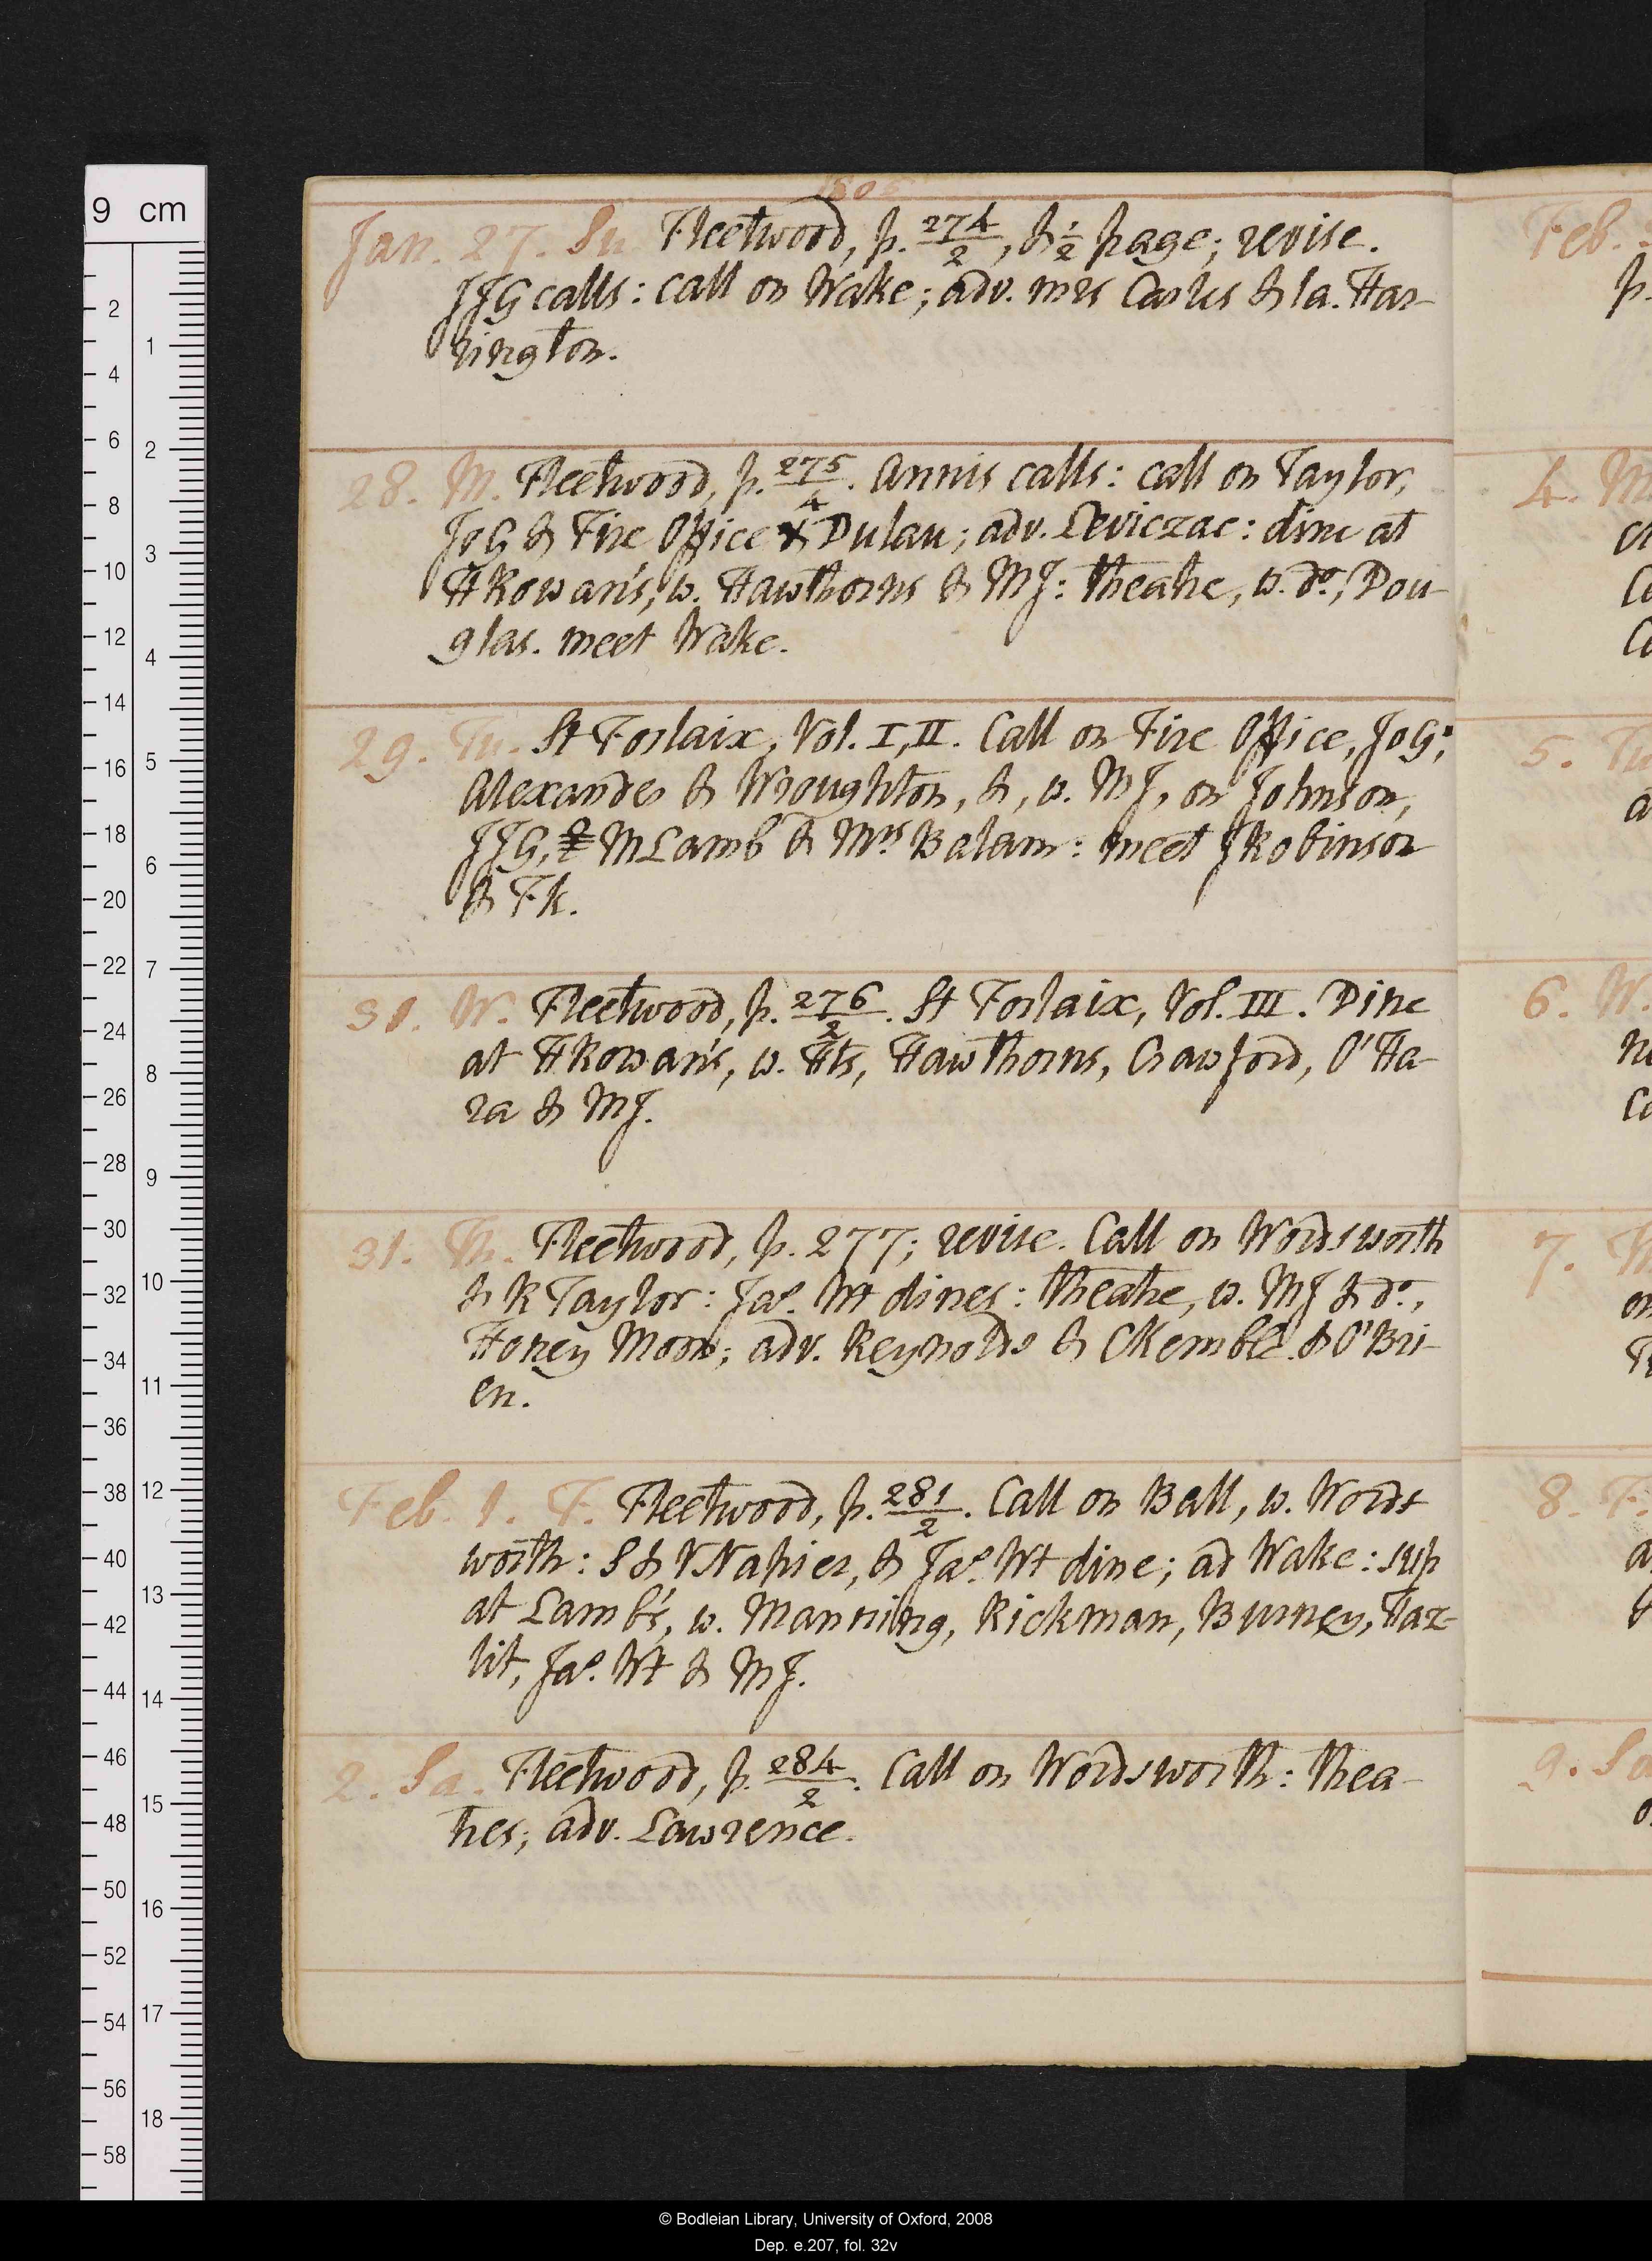 9 cm
1805
Jan. 27. Su. Fleetwood, p. 274/2, & 1/2 page; revise.
JJG calls: call on Wake; adv. mrs Carlis & la. Har-
rington.
28. M. Fleetwood, p. 275/4. Annis calls: call on Taylor,
JoG & Fire Office & Dulau; adv. Leviczac: dine at
HRowan's, w. Hawthorns & MJ: theatre, w. do., Dou-
glas. meet Wake.
29. Tu. St Forlaix, Vol. I, II. Call on Fire Office, JoG;
Alexander & Wroughton, &, w. MJ, on Johnson,
JJG, MLamb & Mrs Balam: meet JRobinson
& Fk.
31. W. Fleetwood, p. 276/2. St Forlaix, Vol. III. Dine
at HRowan's, w. Hts, Hawthorns, Crawford, O'Ha-
ra & MJ.
31. Th. Fleetwood, p. 277; revise. Call on Wordsworth
& RTaylor: Jas. Wt dines: theatre, w. MJ & do.,
Honey Moon; adv. Reynolds & CKemble & O'Bri-
en.
Feb. 1. F. Fleetwood, p. 281/2. Call on Ball, w. Words
worth: S & VNapier, & Jas. Wt dine; ad Wake: sup
at Lamb's, w. Manning, Rickman, Burney, Haz-
lit, Jas. Wt & MJ.
2. Sa. Fleetwood, p. 284/2. Call on Wordsworth: thea-
tres; adv. Lawrence.
Feb.
p.
4. M
5. Tu
a
6. W.
7.
on
8. F.
9. Sa
© Bodleian Library, University of Oxford, 2008
Dep. e.207, fol. 32v